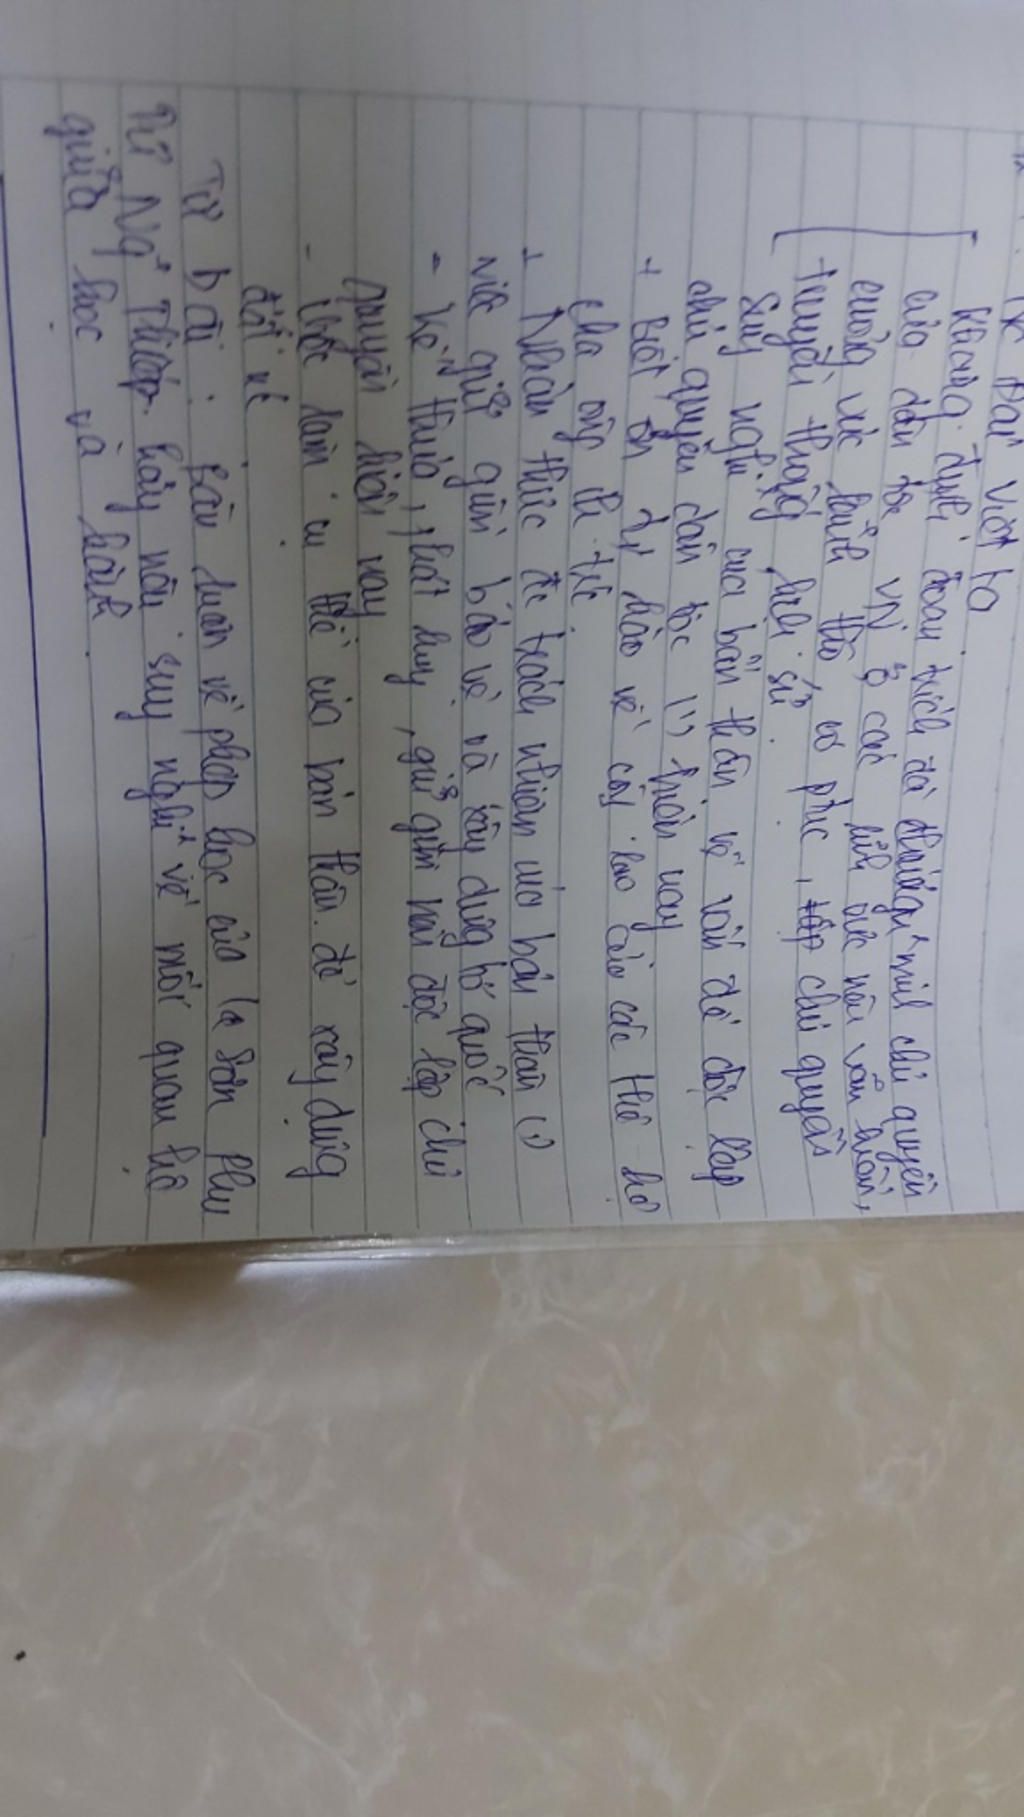 Đại Việt ta
Khẳng định đoạn trích đã chứng minh chủ quyền
của dân tộc VN ở các lĩnh vực nền văn hiến,
cương vực lãnh thổ, phục, chủ quyền
truyền thống lịch sử.
Suy nghĩ của bản thân về vấn đề độc lập
chủ quyền dân tộc hiện nay
+ Biết ơn tự hào về công lao của các thế hệ
cha ông đi trước.
+ Nhận thức trách nhiệm của bản thân
việc giữ gìn bảo vệ và xây dựng tổ quốc
- Kế thừa, phát huy, giữ gìn nền độc lập chủ
quyền hiện nay
- Việc làm cụ thể của bản thân để xây dựng
đất nc
Từ bài: Bàn luận về phép học của La Sơn Phu
Tử Ng~ Thiếp. hãy nêu suy nghĩ về mối quan hệ
giữa học và hành